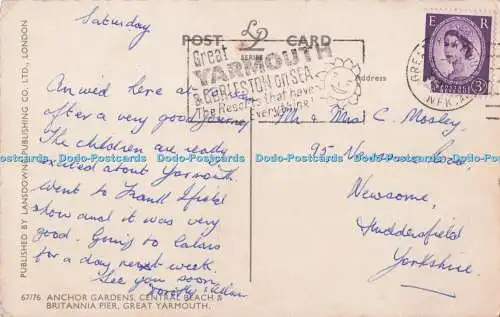 Saturday
POST CARD
LP
SERIES
Great
YARMOUTH
& GORLESTON ON SEA
The Resorts that have
Everything!
E R
POSTAGE REVENUE
3D
GREAT
NFK.
Address
Arrived here at
after a very good journey
The children are really
excited about Yarmouth.
Went to Frank Ifield
show and it was very
good. Going to Caters
for a day next week.
See you soon
Mr & Mrs C. Mosley,
95,
Newsome,
Huddersfield
Yorkshire.
Dodo-Postcards Dodo-Postcards Dodo-Postcards Dodo-Postcards Dodo-Postcards
67/76. ANCHOR GARDENS, CENTRAL BEACH &
BRITANNIA PIER, GREAT YARMOUTH.
PUBLISHED BY LANSDOWNE PUBLISHING CO. LTD., LONDON